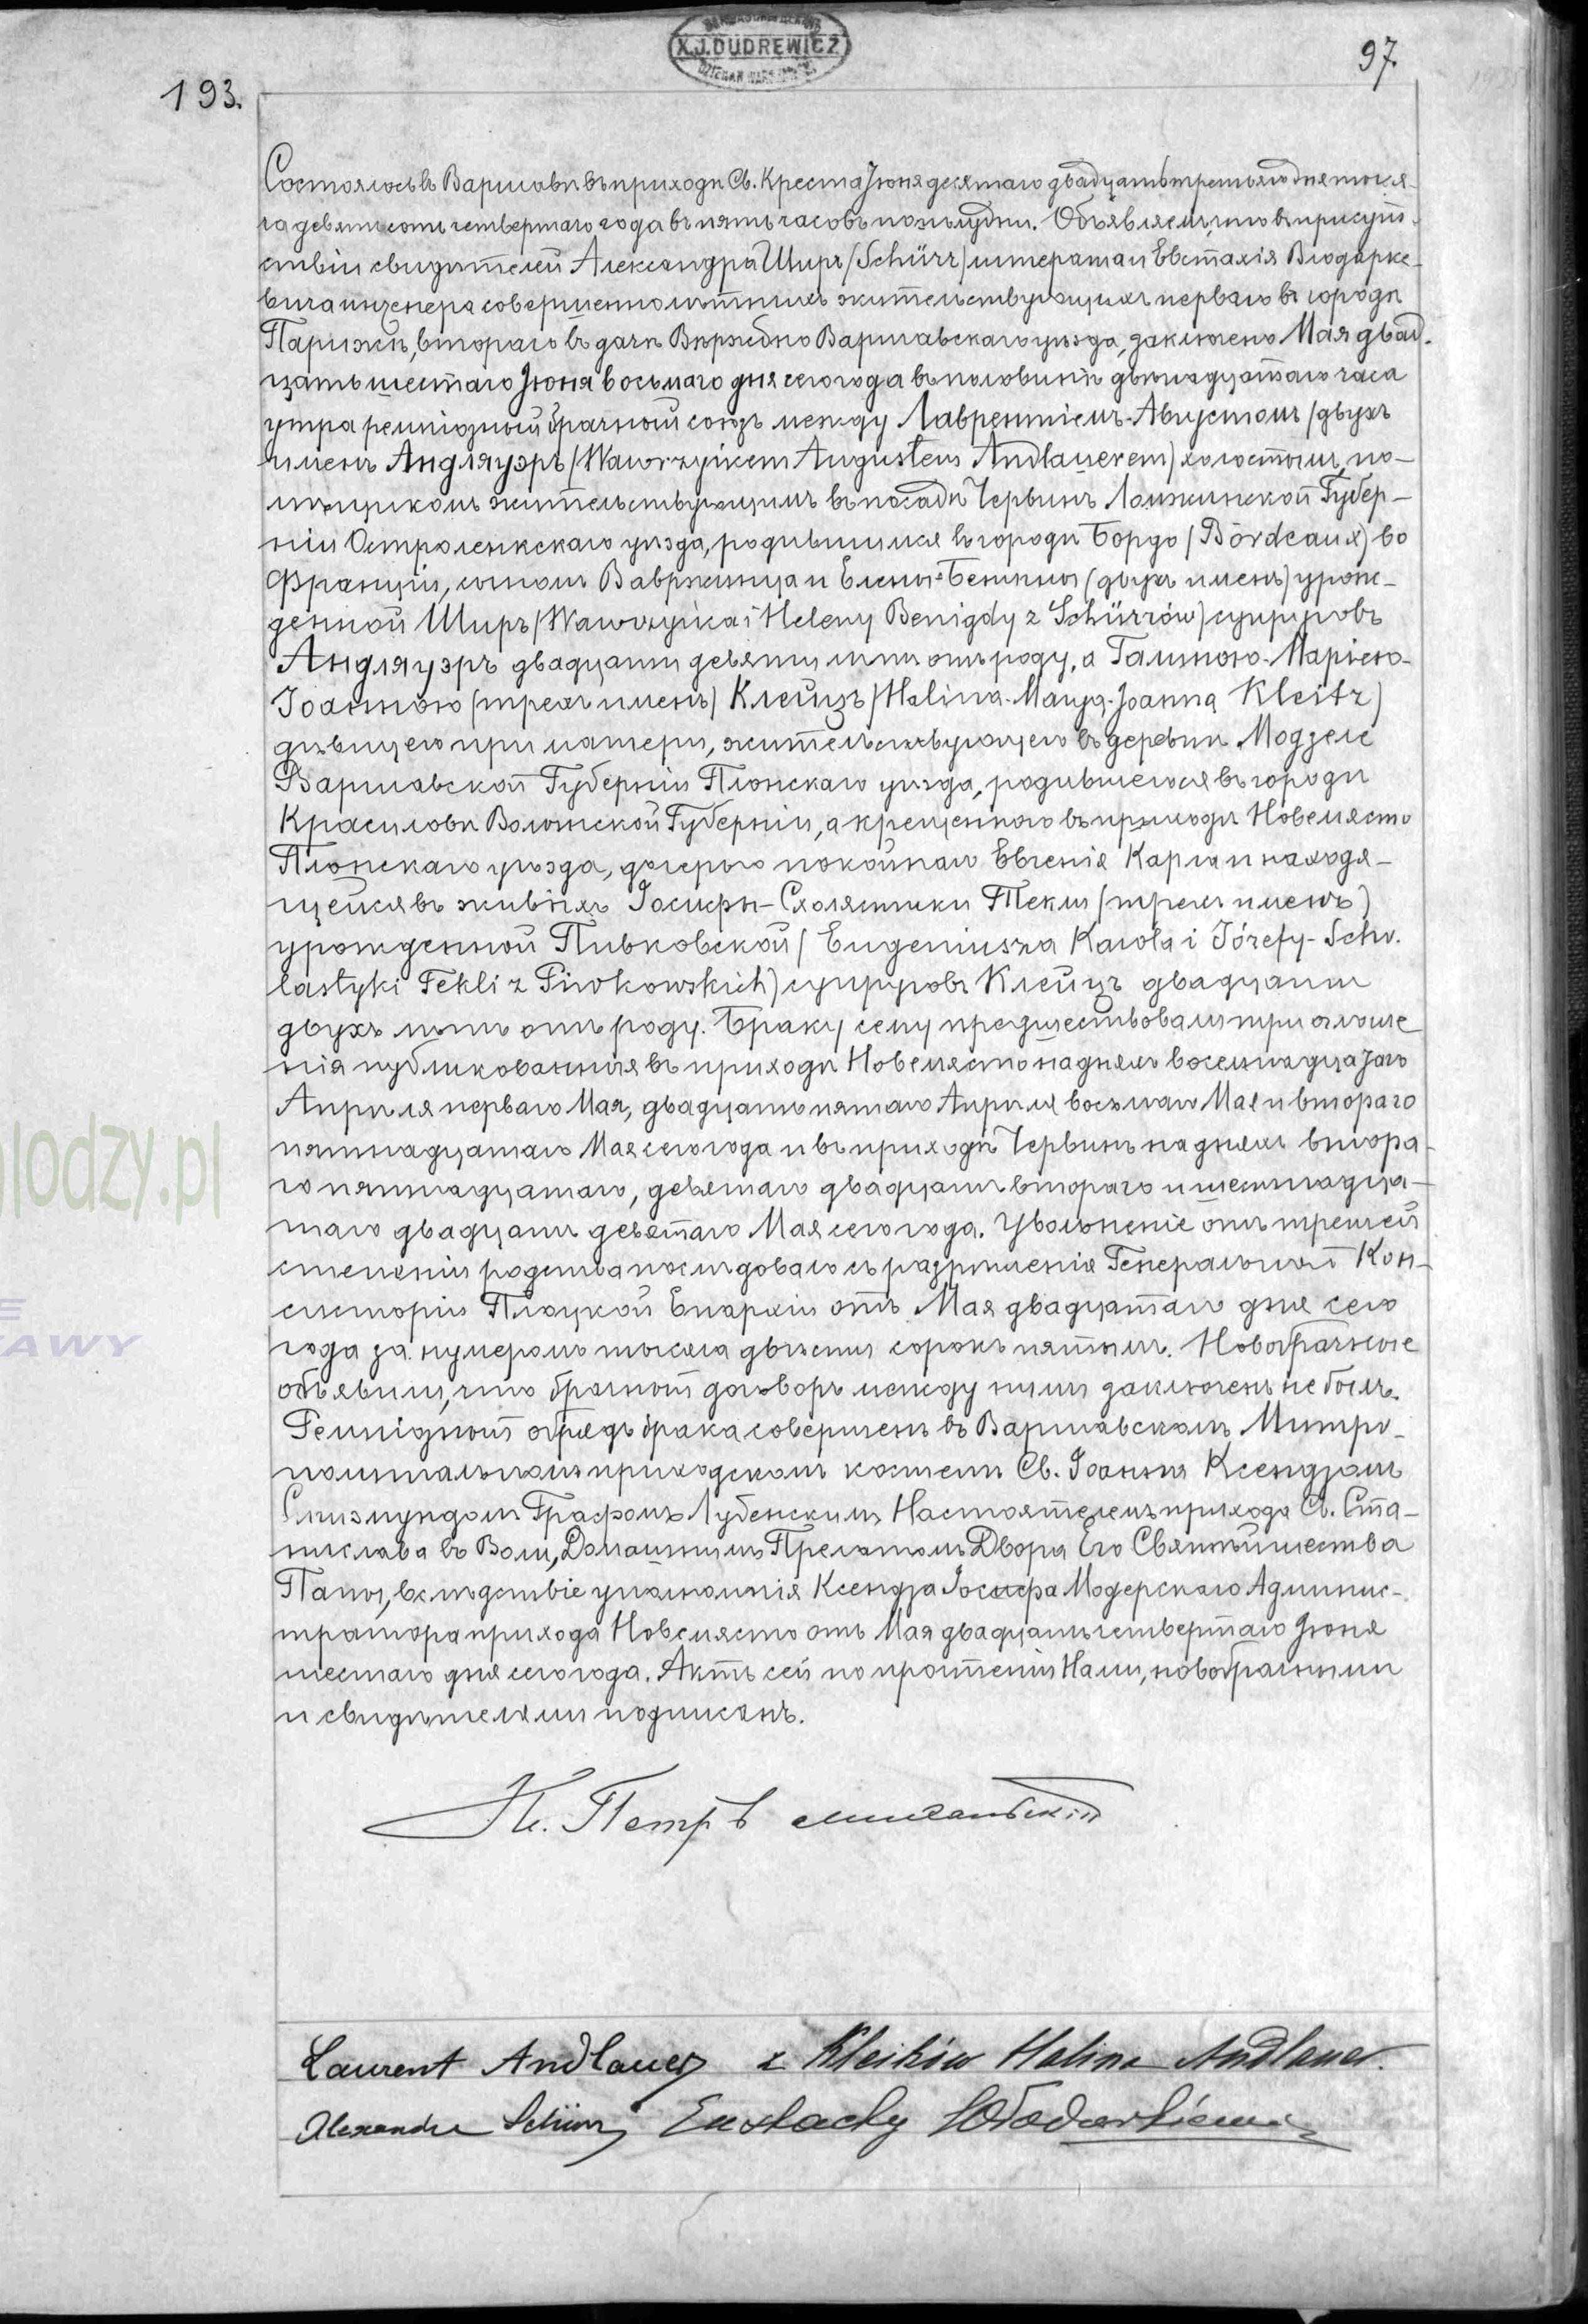 97.
X.J.DUDREWICZ
193.
Состоялось въ Варшавѣ въ приходѣ Св. Креста Іюня десятаго двадцать третьяго дня тыся-
ча девятьсотъ четвертаго года въ пять часовъ пополудни. Объявляемъ, что въ присут-
ствіи свидѣтелей Александра Ширъ (Schürr) литерата и Евстахія Влодарке-
вича инженера совершеннолѣтнихъ жительствующихъ перваго въ городѣ
Парижѣ, втораго въ дачѣ Вержбно Варшавскаго уѣзда, заключено Мая двад-
цать шестаго Іюня восьмаго дня сего года въ половинѣ двѣнадцатаго часа
утра религіозный брачный союзъ между Лаврентіемъ-Августомъ (двухъ
именъ) Андляуэръ (Wawrzyńcem Augustem Andlauerem) холостымъ, по-
мѣщикомъ жительствующимъ въ посадѣ Червинъ Ломжинской Губер-
ніи Остроленкскаго уѣзда, родившимся въ городѣ Бордо (Bordeaux) во
Франціи, сыномъ Вавржинца и Елены-Бенигны (двухъ именъ) урож-
денной Ширъ (Wawrzyńca i Heleny Benigdy z Schürrów) супруговъ
Андляуэръ двадцати девяти лѣтъ отъ роду, а Галиною-Маріею-
Іоанною (трехъ именъ) Клейцъ (Halina-Marya-Joanna Kleitz)
дѣвицею при матери, жительствующею въ деревнѣ Модзеле
Варшавской Губерніи Плонскаго уѣзда, родившеюся въ городѣ
Красиловѣ Волынской Губерніи, а крещенною въ приходѣ Новемясто
Плонскаго уѣзда, дочерью покойнаго Евгенія Карла и находя-
щейся въ живыхъ Іосифы-Схолястики Текли (трехъ именъ)
урожденной Пивковской (Eugeniusza Karola i Józefy-Scho-
lastyki Tekli z Piwkowskich) супруговъ Клейцъ двадцати
двухъ лѣтъ отъ роду. Браку сему предшествовали три оглаше
нія публикованныя въ приходѣ Новемясто на дняхъ восемнадцатаго
Апрѣля перваго Мая, двадцать пятаго Апрѣля восьмаго Мая и втораго
пятнадцатаго Мая сего года и въ приходѣ Червинъ на дняхъ втора-
го пятнадцатаго, девятаго двадцать втораго и шестнадца-
таго двадцать девятаго Мая сего года. Увольненіе отъ третьей
степени родства послѣдовало съ разрѣшенія Генеральной Кон-
систоріи Плоцкой Епархіи отъ Мая двадцатаго дня сего
года за нумеромъ тысяча двѣсти сорокъ пятымъ. Новобрачные
объявили, что брачный договоръ между ними заключенъ не былъ.
Религіозный обрядъ брака совершенъ въ Варшавскомъ Митро-
политальномъ приходскомъ костелѣ Св. Іоанна Ксендзомъ
Сигизмундомъ Графомъ Лубенскимъ Настоятелемъ прихода Св. Ста-
нислава въ Воли, Домашнимъ Прелатомъ Двора Его Святѣйшества
Папы, вслѣдствіе уполномочія Ксендза Іосифа Модерскаго Админис-
тратора прихода Новемясто отъ Мая двадцать четвертаго Іюня
шестаго дня сего года. Актъ сей по прочтеніи Нами, новобрачными
и свидѣтелями подписанъ.
Кс. Петръ
Laurent Andlauer z Kleitzów Halina Andlauer.
Alexandre Schürr Eustachy Włodarkiewicz
lodzy.pl
AWY